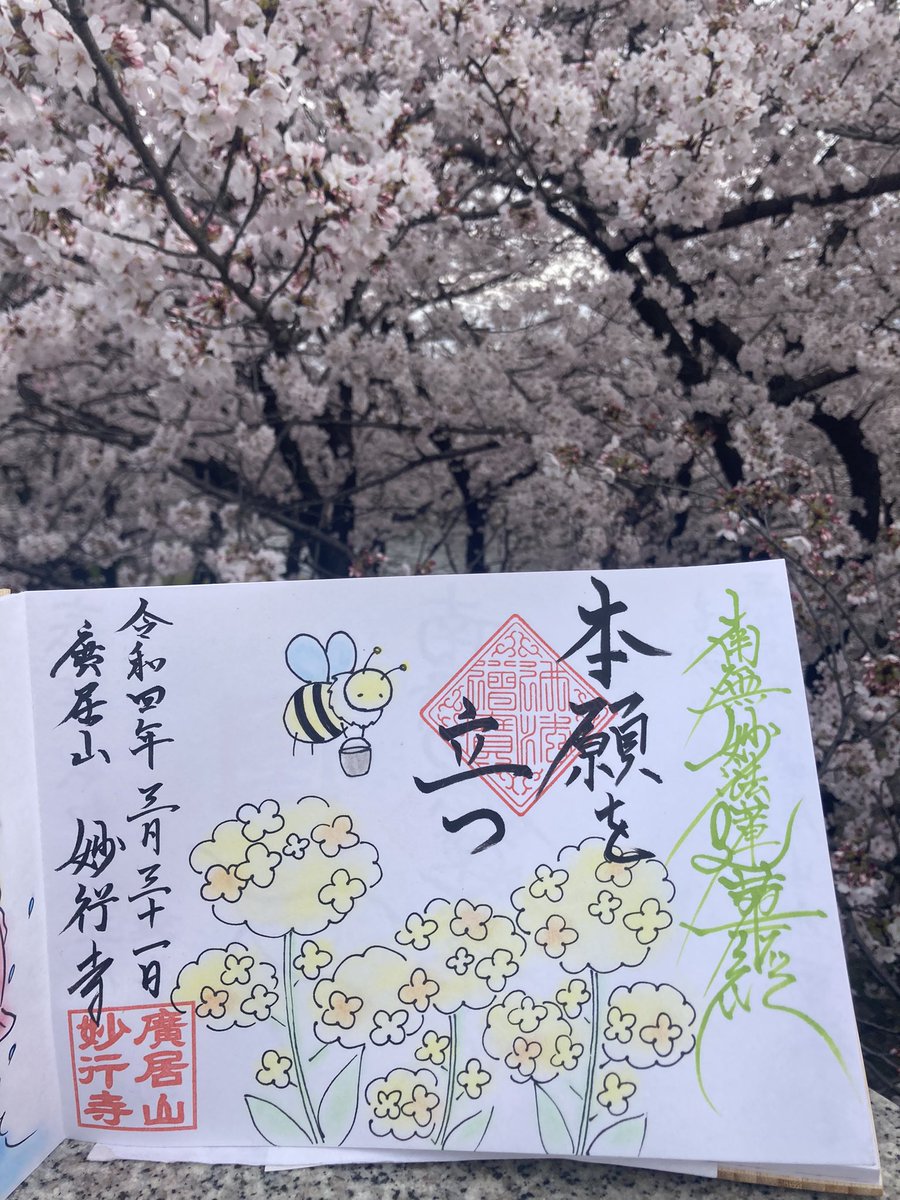 南無妙法蓮華経
本願を
立つ
令和四年 三月三十一日
廣居山 妙行寺
廣居山
妙行寺